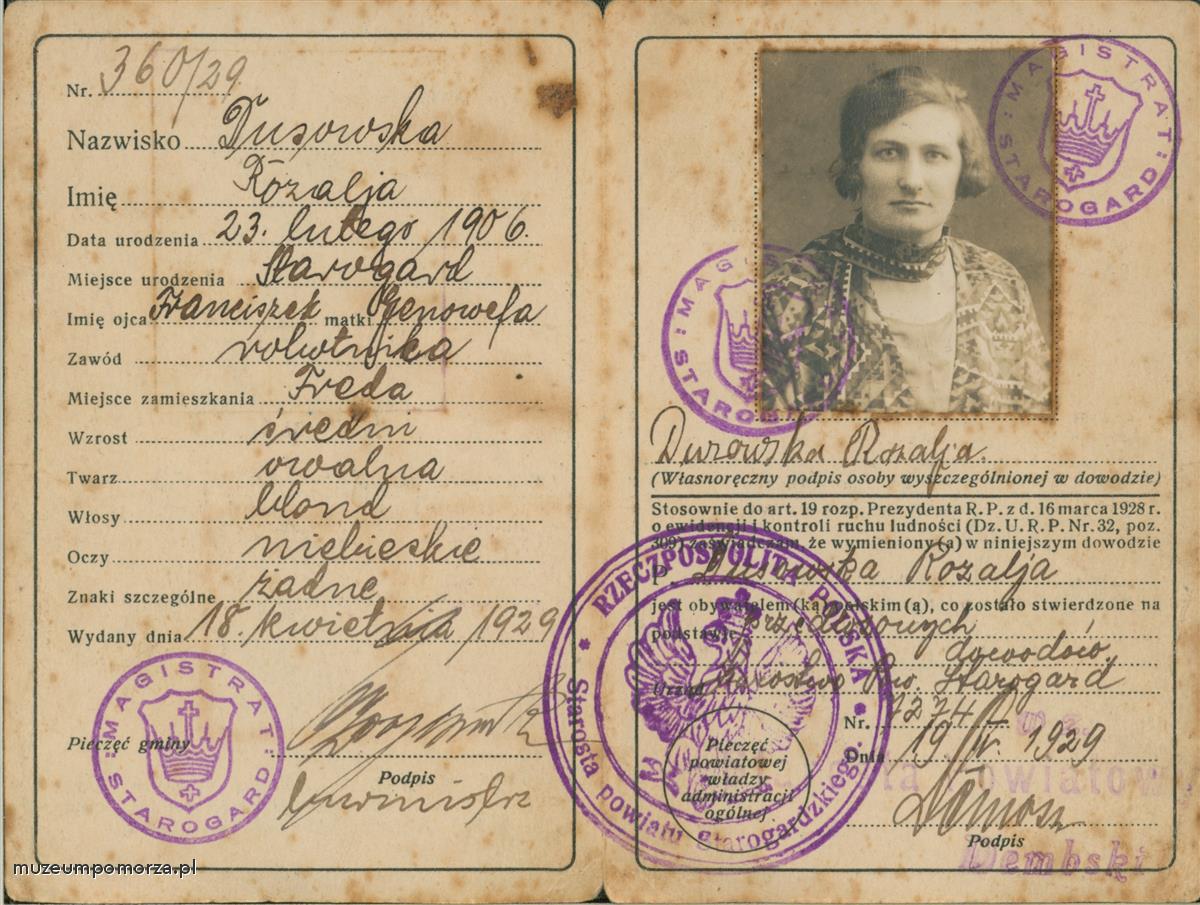 Nr. 360/29
Nazwisko Dusowska
Imię Rozalja
Data urodzenia 23. lutego 1906.
Miejsce urodzenia Starogard
Imię ojca Franciszek matki Genowefa
Zawód robotnica
Miejsce zamieszkania Freda
Wzrost średni
Twarz owalna
Włosy blond
Oczy niebieskie
Znaki szczególne żadne
Wydany dnia 18. kwietnia 1929
Pieczęć gminy
Podpis
burmistrz
MAGISTRAT STAROGARD
muzeumpomorza.pl
MAGISTRAT STAROGARD
MAGISTRAT STAROGARD
Durowska Rozalja.
(Własnoręczny podpis osoby wyszczególnionej w dowodzie)
Stosownie do art. 19 rozp. Prezydenta R. P. z d. 16 marca 1928 r.
o ewidencji i kontroli ruchu ludności (Dz. U. R. P. Nr. 32, poz.
309) zaświadczam, że wymieniony (a) w niniejszym dowodzie
p. Dusowska Rozalja
jest obywatelem (ką) polskim (ą), co zostało stwierdzone na
podstawie przedłożonych
dowodów.
Urząd Starostwo Pow. Starogard
Nr. 1274
Dnia 19/IV. 1929
Pieczęć
powiatowej
władzy
administracji
ogólnej
Podpis
Dembski
RZECZPOSPOLITA POLSKA
Starosta powiatu starogardzkiego.